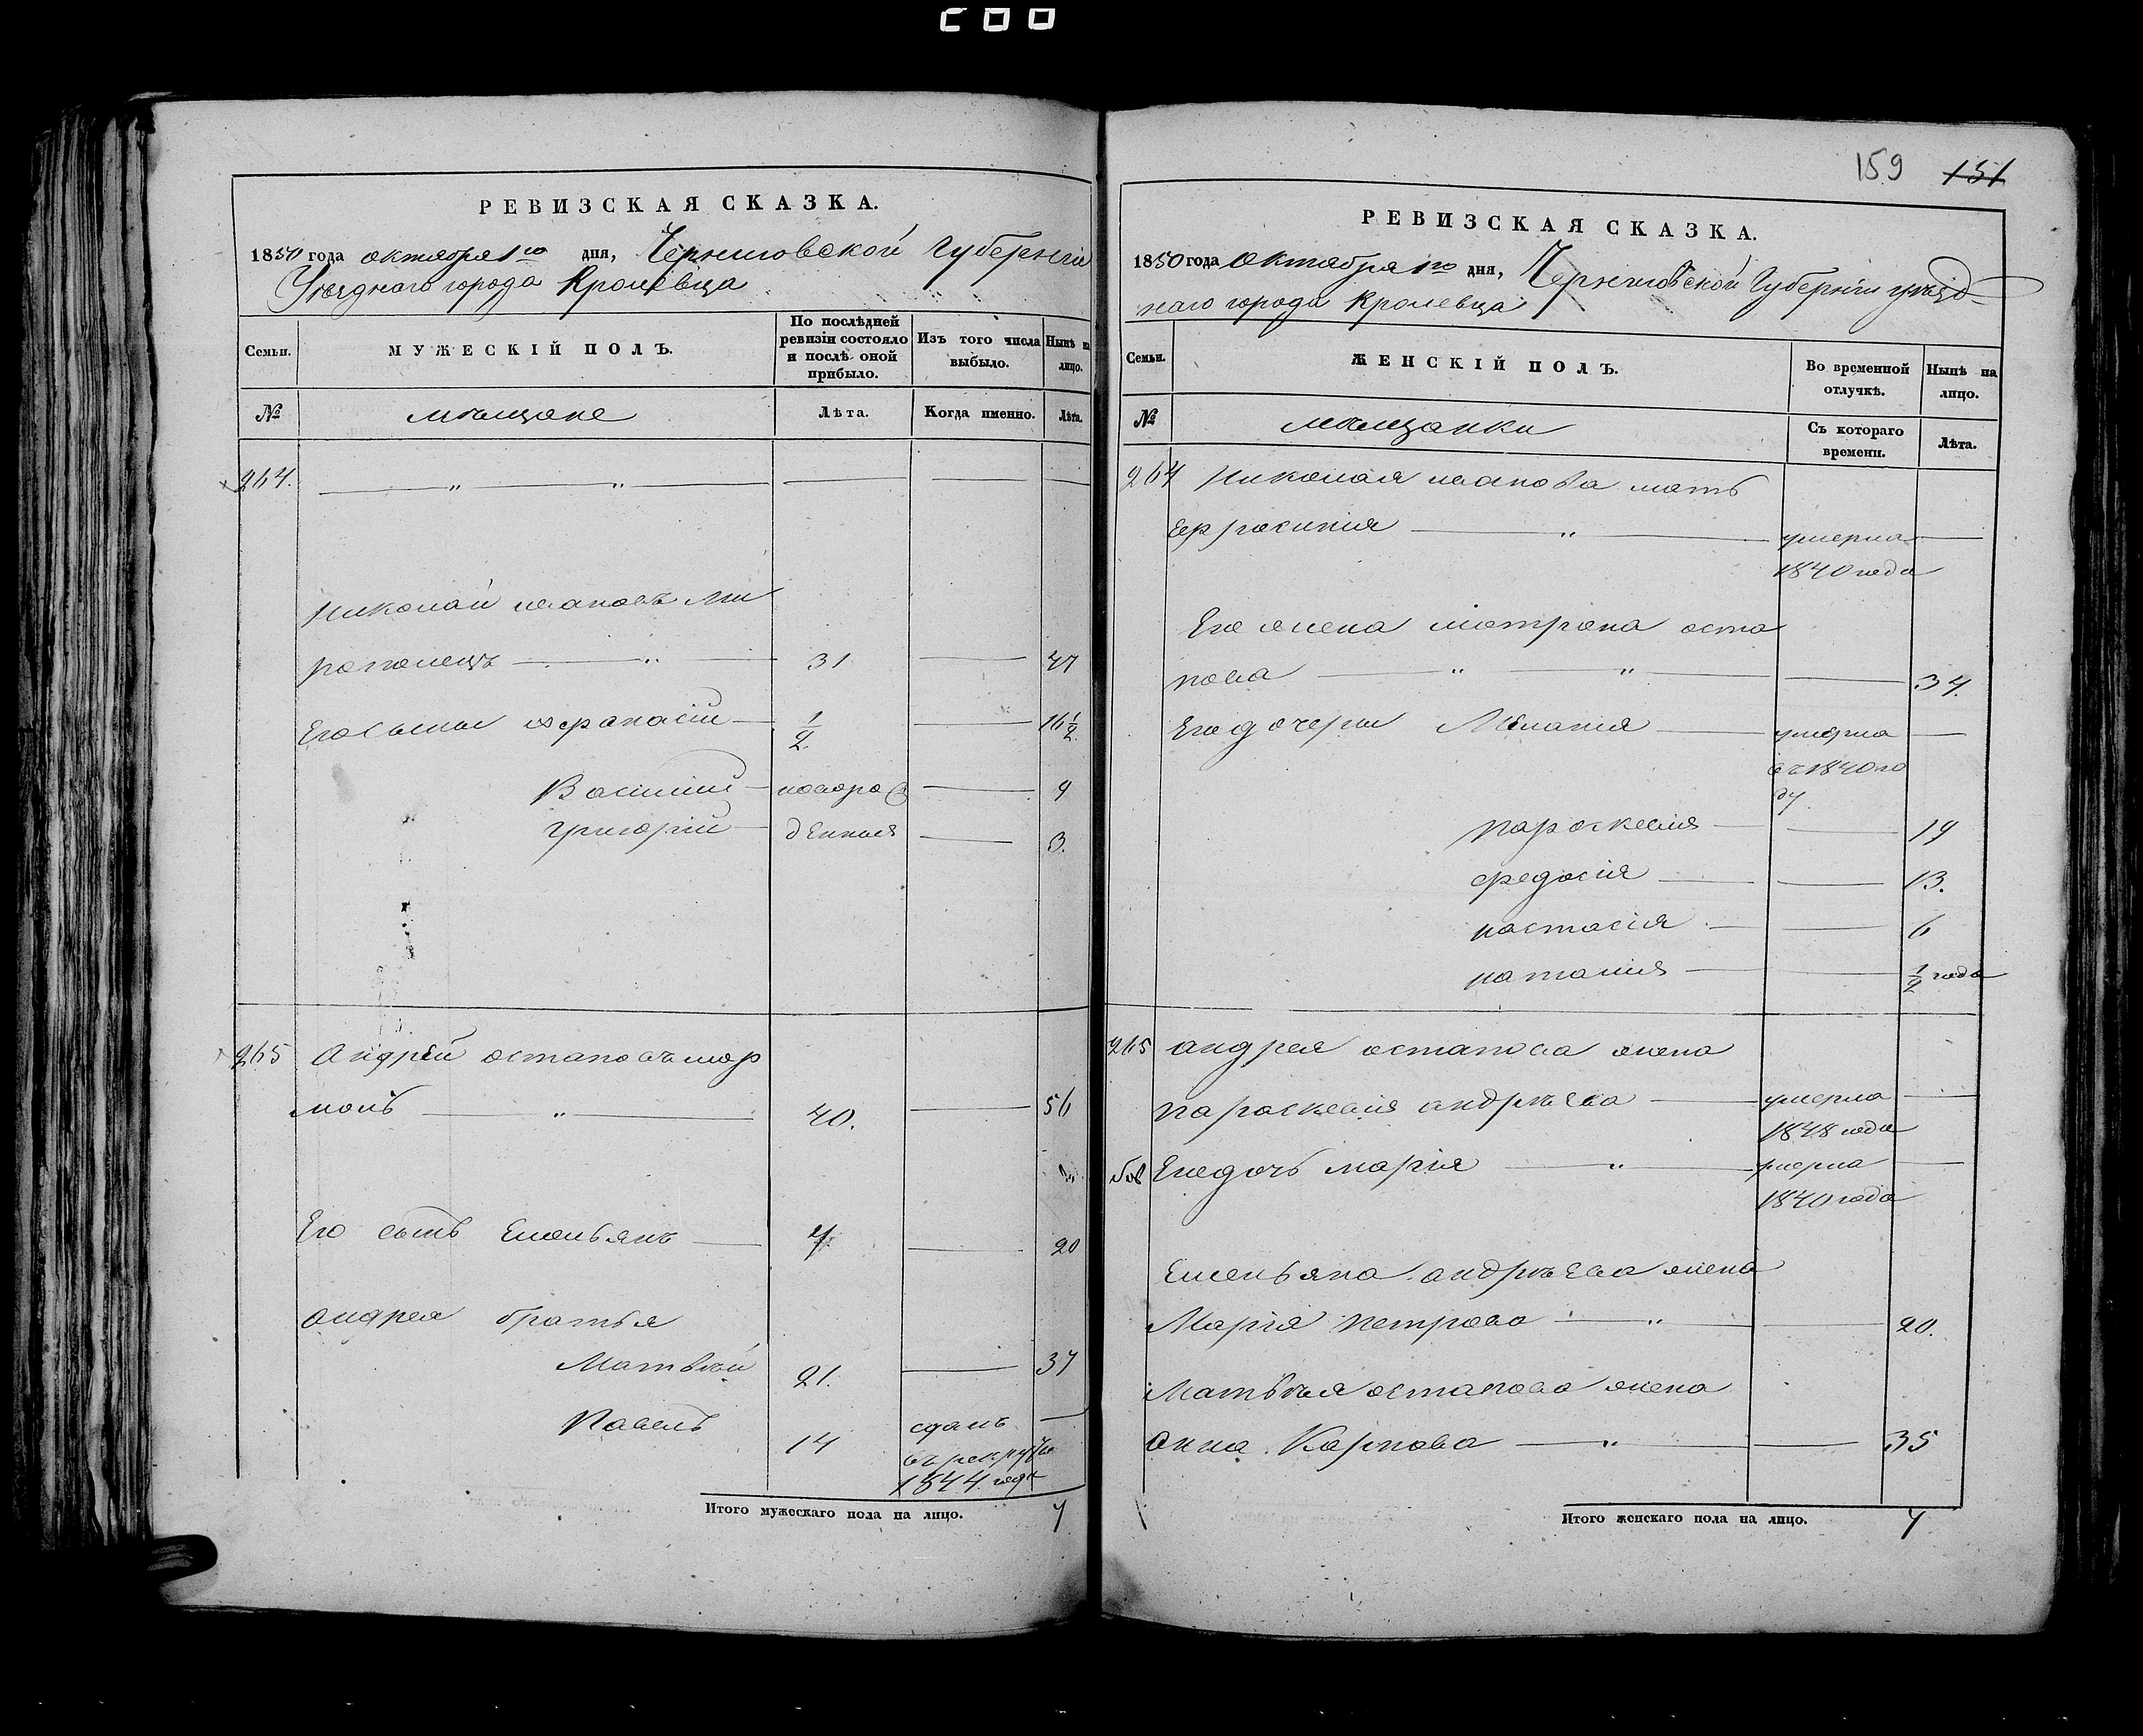 РЕВИЗСКАЯ СКАЗКА.
1850 года октября 1го дня, Черниговской Губерніи
Уезднаго города Кролевца
Семьи. МУЖЕСКІЙ ПОЛЪ. По послѣдней ревизіи состояло и послѣ оной прибыло. Изъ того числа выбыло. Нынѣ на лицо.
№ мѣщане Лѣта. Когда именно. Лѣта.
264.
Николай ивановъ Ми
31 47
Его сыны афанасіи 1/2 16 1/2
Василій новоро 9
григорій денныя 3.
265 Андрей остаповъ
40. 56
Его сынъ Емельянъ 4 20
андрея братья
Матвѣй 21. 37
Павелъ 14 сданъ
въ рекруты
1844 года
Итого мужескаго пола на лицо. 7
159 151
РЕВИЗСКАЯ СКАЗКА.
1850 года октября 1го дня, Черниговской Губерніи уѣзд-
наго города Кролевца
Семьи. ЖЕНСКІЙ ПОЛЪ. Во временной отлучкѣ. Нынѣ на лицо.
№ мѣщанки Съ котораго времени. Лѣта.
264 Николая иванова мать
Ефросинія умерла
1840 года
Его жена матрона оста
пова 34.
Его дочери Меланія умерла
въ 1840 го
ду.
параскевія 19
федосія 13.
настасія 6
наталія 1/2 года
265 андрея остапова жена
параскевія андрѣева умерла
1848 года
Его дочь марія умерла
1840 года
Емельяна андрѣева жена
Марія петрова 20.
Матвѣя остапова жена
анна Карпова 35
Итого женскаго пола на лицо. 7